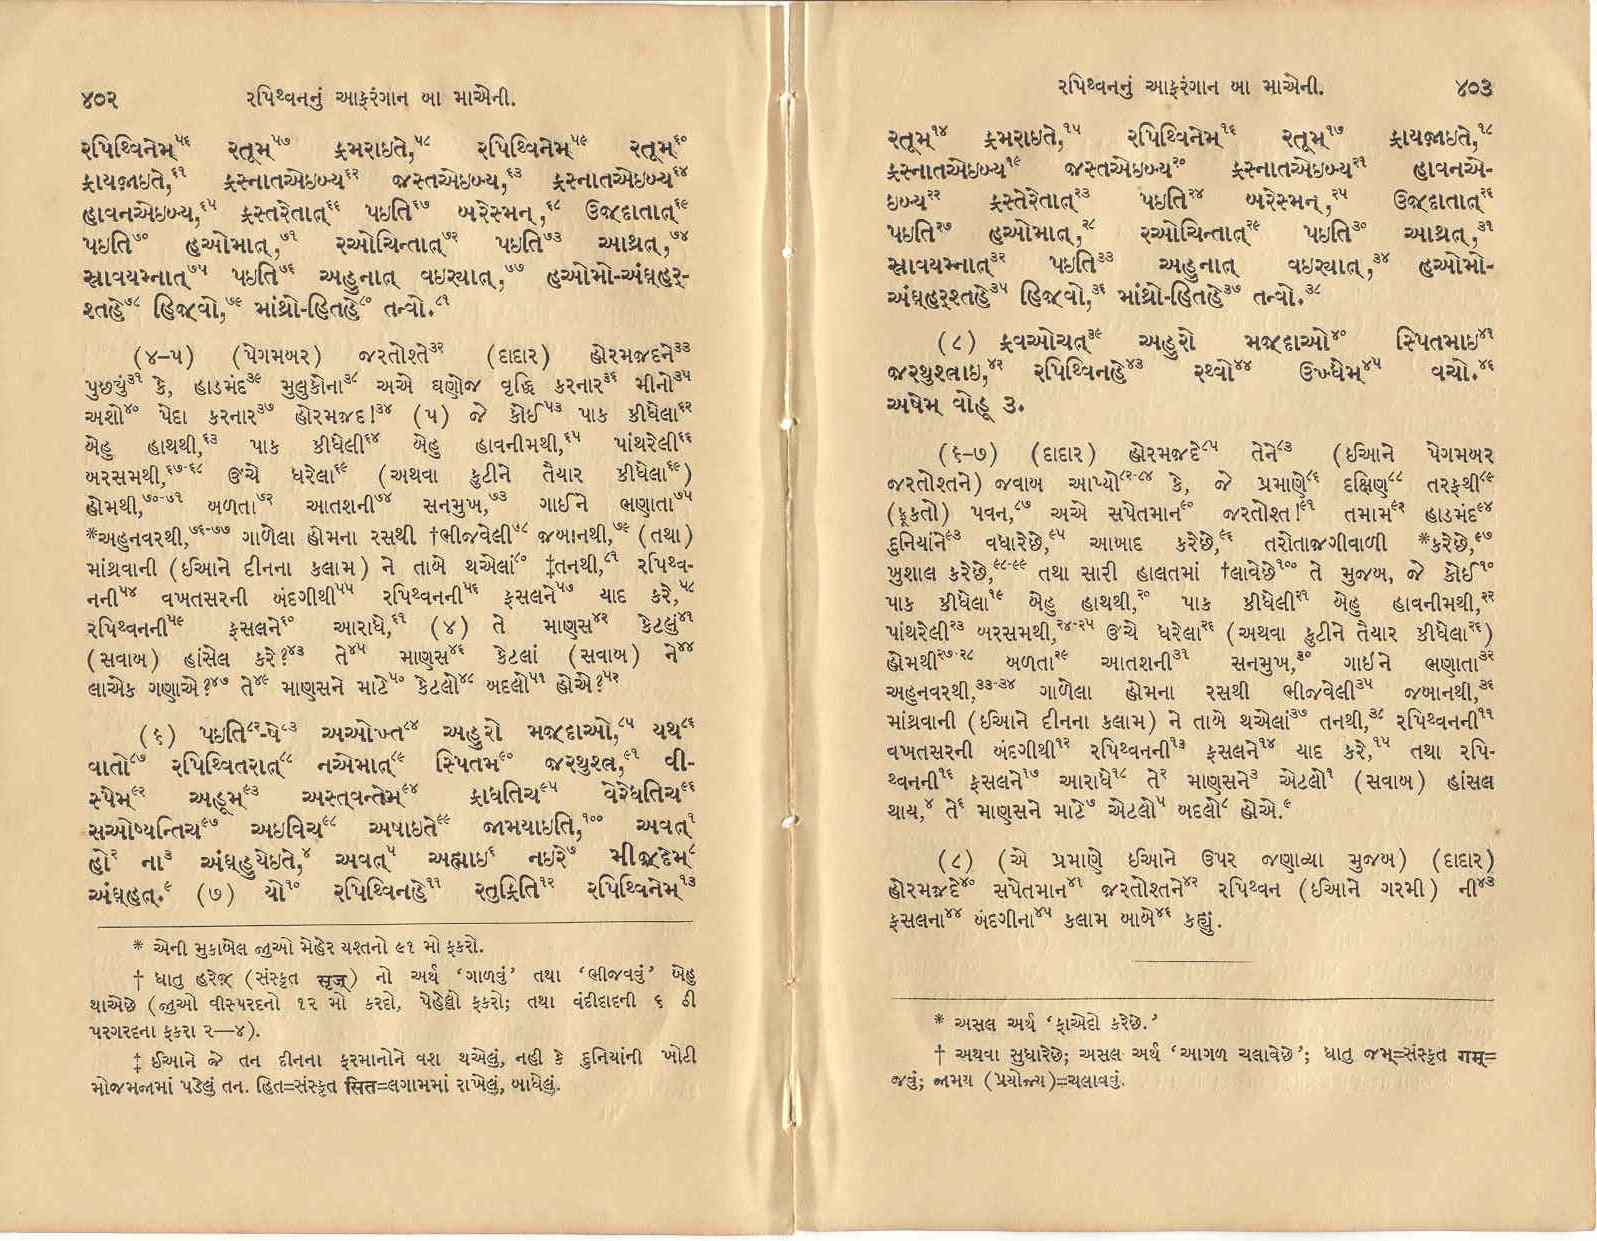 ૪૦૨ રપિથ્વનનું આફરંગાન બા માએની.
રપિથ્વિનેમ્૫૬ રતૂમ્૫૭ ફ્રમરાઇતે,૫૮ રપિથ્વિનેમ્૫૯ રતૂમ્૬૦
ફ્રાયજ઼ાઇતે,૬૧ ફ્રસ્નાતએઇબ્ય૬૨ જ઼સ્તએઇબ્ય,૬૩ ફ્રસ્નાતએઇબ્ય૬૪
હાવનએઇબ્ય,૬૫ ફ્રસ્તરેતાત્૬૬ પઇતિ૬૭ બરેસ્મન્,૬૮ ઉજ઼્દાતાત્૬૯
પઇતિ૭૦ હઓમાત્,૭૧ રઓચિન્તાત્૭૨ પઇતિ૭૩ આથ્રત્,૭૪
સ્રાવયમ્નાત્૭૫ પઇતિ૭૬ અહુનાત્ વઇર્યાત્,૭૭ હઓમો-અંઘ્હર્-
શ્તહે૭૮ હિજ઼્વો,૭૯ માંથ્રો-હિતહે૮૦ તન્વો.૮૧
(૪-૫) (પેગમબર) જરતોશ્તે૩૨ (દાદાર) હોરમજ઼દને૩૩
પુછયું૩૧ કે, હાડમંદ૩૯ મુલુકોના૩૮ અએ ઘણોજ વૃદ્ધિ કરનાર૩૬ મીનો૩૫
અશો૪૦ પેદા કરનાર૩૭ હોરમજ઼દ!૩૪ (૫) જે કોઈ૫૩ પાક કીધેલા૬૨
બેહુ હાથથી,૬૩ પાક કીધેલી૬૪ બેહુ હાવનીમથી,૬૫ પાંથરેલી૬૬
બરસમથી,૬૭-૬૮ ઉંચે ધરેલા૬૯ (અથવા કુટીને તૈયાર કીધેલા૬૯)
હોમથી,૭૦-૭૧ બળતા૭૨ આતશની૭૪ સનમુખ,૭૩ ગાઈને ભણાતા૭૫
*અહુનવરથી,૭૬-૭૭ ગાળેલા હોમના રસથી †ભીજવેલી૭૮ જબાનથી,૭૯ (તથા)
માંથ્રવાની (ઈઆને દીનના કલામ) ને તાબે થએલાં૮૦ ‡તનથી,૮૧ રપિથ્વ-
નની૫૪ વખતસરની બંદગીથી૫૫ રપિથ્વનની૫૬ ફસલને૫૭ યાદ કરે,૫૮
રપિથ્વનની૫૯ ફસલને૬૦ આરાધે,૬૧ (૪) તે માણસ૪૨ કેટલું૪૧
(સવાબ) હાંસેલ કરે?૪૩ તે૪૫ માણસ૪૬ કેટલાં (સવાબ) ને૪૪
લાએક ગણાએ?૪૭ તે૪૯ માણસને માટે૫૦ કેટલો૪૮ બદલો૫૧ હોએ?૫૨
(૬) પઇતિ૮૨-ષે૮૩ અઓખ્ત૮૪ અહુરો મજ઼્દાઓ,૮૫ યથ૮૬
વાતો૮૭ રપિથ્વિતરાત્૮૮ નએમાત્૮૯ સ્પિતમ૯૦ જ઼રથુશ્ત્ર,૯૧ વી-
સ્પેમ્૯૨ અહૂમ્૯૩ અસ્ત્વન્તેમ્૯૪ ફ્રાધતિચ૯૫ વેરેધતિચ૯૬
સઓષ્યન્તિચ૯૭ અઇવિચ૯૮ અષાઇતે૯૯ જામયાઇતિ,૧૦૦ અવત્૧
હો૨ ના૩ અંઘ્હુયેઇતે,૪ અવત્૫ અહ્માઇ૬ નઇરે૭ મીજ઼્દેમ્૮
અંઘ્હત્.૯ (૭) યો૧૦ રપિથ્વિનહે૧૧ રતુફ્રિતિ૧૨ રપિથ્વિનેમ્૧૩
* એની મુકાબેલ જુઓ મેહેર યશ્તનો ૯૧ મો ફકરો.
† ધાતુ હરેજ઼્ (સંસ્કૃત सृज्) નો અર્થ ‘ગાળવું’ તથા ‘ભીજવવું’ બેહુ
થાએછે (જુઓ વીસ્પરદનો ૧૨ મો કરદો, પેહેલો ફકરો; તથા વંદીદાદની ૬ ઠી
પરગરદના ફકરા ૨—૪).
‡ ઈઆને જે તન દીનના ફરમાનોને વશ થએલું, નહી કે દુનિયાંની ખોટી
મોજમજામાં પડેલું તન. હિત=સંસ્કૃત सित=લગામમાં રાખેલું, બાધેલું.
રપિથ્વનનું આફરંગાન બા માએની. ૪૦૩
રતૂમ્૧૪ ફ્રમરાઇતે,૧૫ રપિથ્વિનેમ્૧૬ રતૂમ્૧૭ ફ્રાયજ઼ાઇતે,૧૮
ફ્રસ્નાતએઇબ્ય૧૯ જ઼સ્તએઇબ્ય૨૦ ફ્રસ્નાતએઇબ્ય૨૧ હાવનએ-
ઇબ્ય૨૨ ફ્રસ્તેરેતાત્૨૩ પઇતિ૨૪ બરેસ્મન્,૨૫ ઉજ઼્દાતાત્૨૬
પઇતિ૨૭ હઓમાત્,૨૮ રઓચિન્તાત્૨૯ પઇતિ૩૦ આથ્રત્,૩૧
સ્રાવયમ્નાત્૩૨ પઇતિ૩૩ અહુનાત્ વઇર્યાત્,૩૪ હઓમો-
અંઘ્હર્શ્તહે૩૫ હિજ઼્વો,૩૬ માંથ્રો-હિતહે૩૭ તન્વો.૩૮
(૮) ફ્રવઓચત્૩૯ અહુરો મજ઼્દાઓ૪૦ સ્પિતમાઇ૪૧
જ઼રથુશ્ત્રાઇ,૪૨ રપિથ્વિનહે૪૩ રથ્વો૪૪ ઉખ્ધેમ્૪૫ વચો.૪૬
અષેમ્ વોહૂ ૩.
(૬-૭) (દાદાર) હોરમજ઼દે૮૫ તેને૮૩ (ઈઆને પેગમબર
જરતોશ્તને) જવાબ આપ્યો૮૨-૮૪ કે, જે પ્રમાણે૮૬ દક્ષિણ૮૮ તરફથી૮૯
(ફૂકતો) પવન,૮૭ અએ સપેતમાન૯૦ જરતોશ્ત!૯૧ તમામ૯૨ હાડમંદ૯૪
દુનિયાંને૯૩ વધારેછે,૯૫ આબાદ કરેછે,૯૬ તરોતાજગીવાળી *કરેછે,૯૭
ખુશાલ કરેછે,૯૮-૯૯ તથા સારી હાલતમાં †લાવેછે૧૦૦ તે મુજબ, જે કોઈ૧૦
પાક કીધેલા૧૯ બેહુ હાથથી,૨૦ પાક કીધેલી૨૧ બેહુ હાવનીમથી,૨૨
પાંથરેલી૨૩ બરસમથી,૨૪-૨૫ ઉંચે ધરેલા૨૬ (અથવા કુટીને તૈયાર કીધેલા૨૬)
હોમથી૨૭-૨૮ બળતા૨૯ આતશની૩૧ સનમુખ,૩૦ ગાઈને ભણાતા૩૨
અહુનવરથી,૩૩-૩૪ ગાળેલા હોમના રસથી ભીજવેલી૩૫ જબાનથી,૩૬
માંથ્રવાની (ઈઆને દીનના કલામ) ને તાબે થએલાં૩૭ તનથી,૩૮ રપિથ્વનની૧૧
વખતસરની બંદગીથી૧૨ રપિથ્વનની૧૩ ફસલને૧૪ યાદ કરે,૧૫ તથા રપિ-
થ્વનની૧૬ ફસલને૧૭ આરાધે૧૮ તે૨ માણસને૩ એટલો૧ (સવાબ) હાંસલ
થાય,૪ તે૬ માણસને માટે૭ એટલો૫ બદલો૮ હોએ.૯
(૮) (એ પ્રમાણે ઈઆને ઉપર જણાવ્યા મુજબ) (દાદાર)
હોરમજ઼દે૪૦ સપેતમાન૪૧ જ઼રતોશ્તને૪૨ રપિથ્વન (ઈઆને ગરમી) ની૪૩
ફસલના૪૪ બંદગીના૪૫ કલામ બાબે૪૬ કહ્યું.
* અસલ અર્થ ‘ફાએદો કરેછે.’
† અથવા સુધારેછે; અસલ અર્થ ‘આગળ ચલાવેછે’; ધાતુ જમ્=સંસ્કૃત गम्=
જવું; જામય (પ્રયોજ્ય)=ચલાવવું.